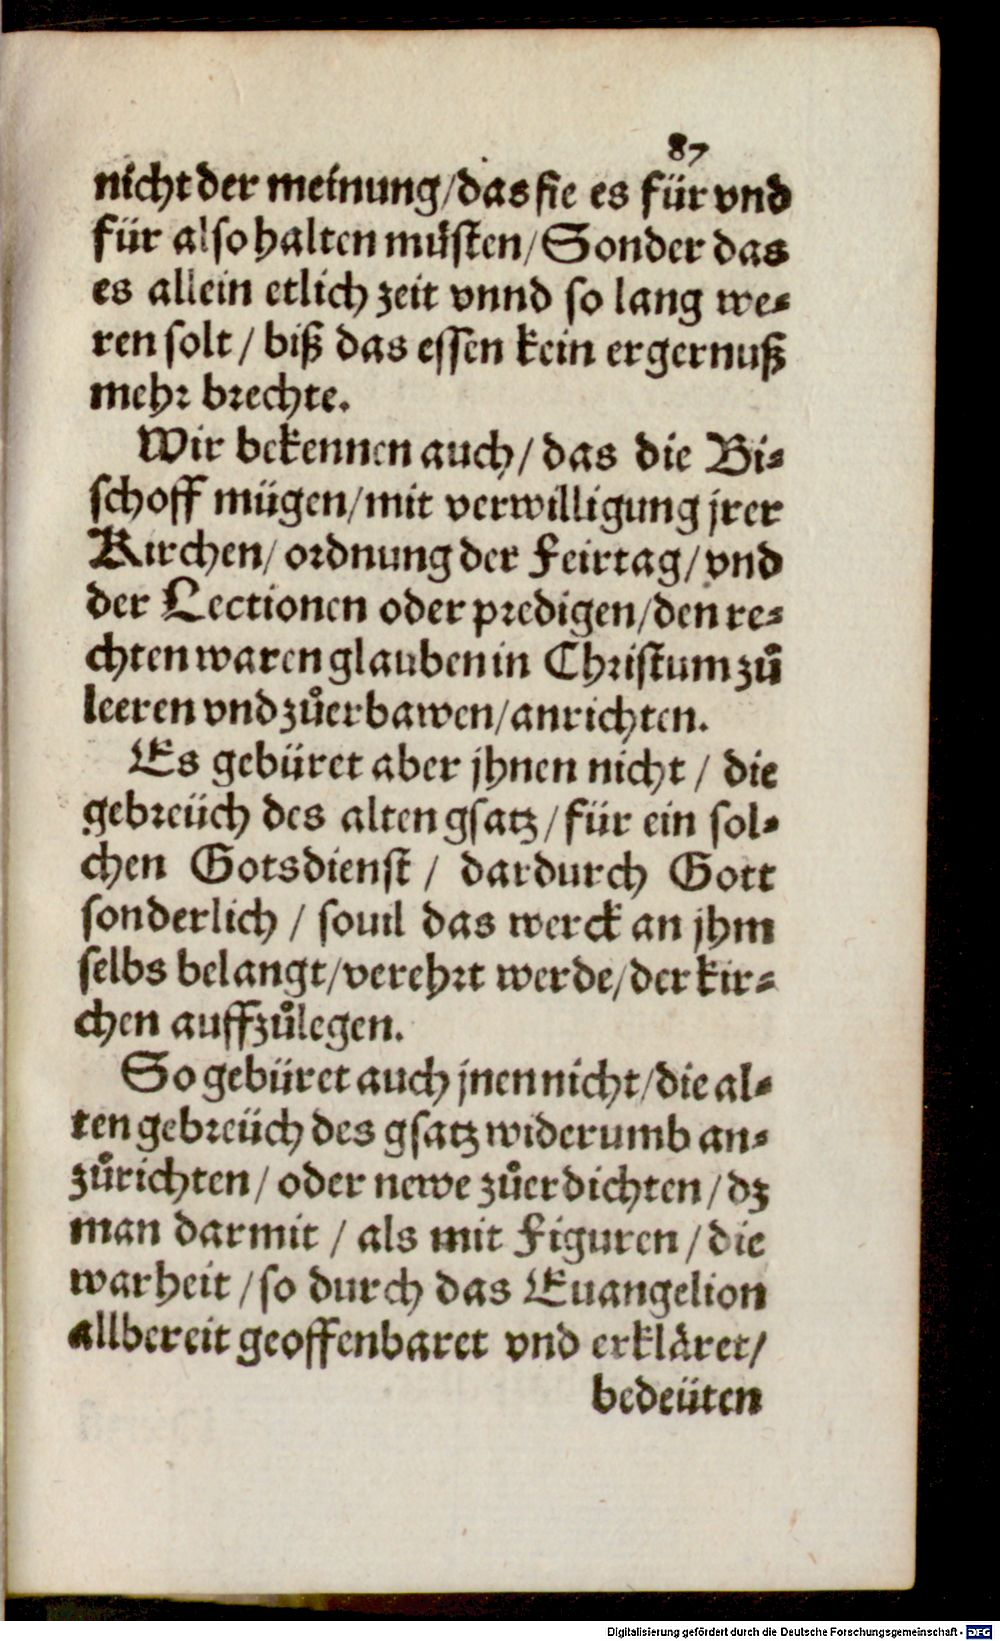 87
nicht der meinung/das sie es für vnd
für also halten müsten/Sonder das
es allein etlich zeit vnnd so lang we-
ren solt / biß das essen kein ergernuß
mehr brechte.
Wir bekennen auch/ das die Bi-
schoff mügen/mit verwilligung jrer
Kirchen/ ordnung der Feirtag/ vnd
der Lectionen oder predigen/den re-
chten waren glauben in Christum zů
leeren vnd zůerbawen/anrichten.
Es gebüret aber jhnen nicht / die
gebreüch des alten gsatz/für ein sol-
chen Gotsdienst / dardurch Gott
sonderlich / souil das werck an jhm
selbs belangt/verehrt werde/der kir-
chen auffzůlegen.
So gebüret auch jnen nicht/die al-
ten gebreüch des gsatz widerumb an-
zůrichten/ oder newe zůerdichten/ dz
man darmit / als mit Figuren/ die
warheit /so durch das Euangelion
allbereit geoffenbaret vnd erkläret/
bedeüten
Digitalisierung gefördert durch die Deutsche Forschungsgemeinschaft - DFG